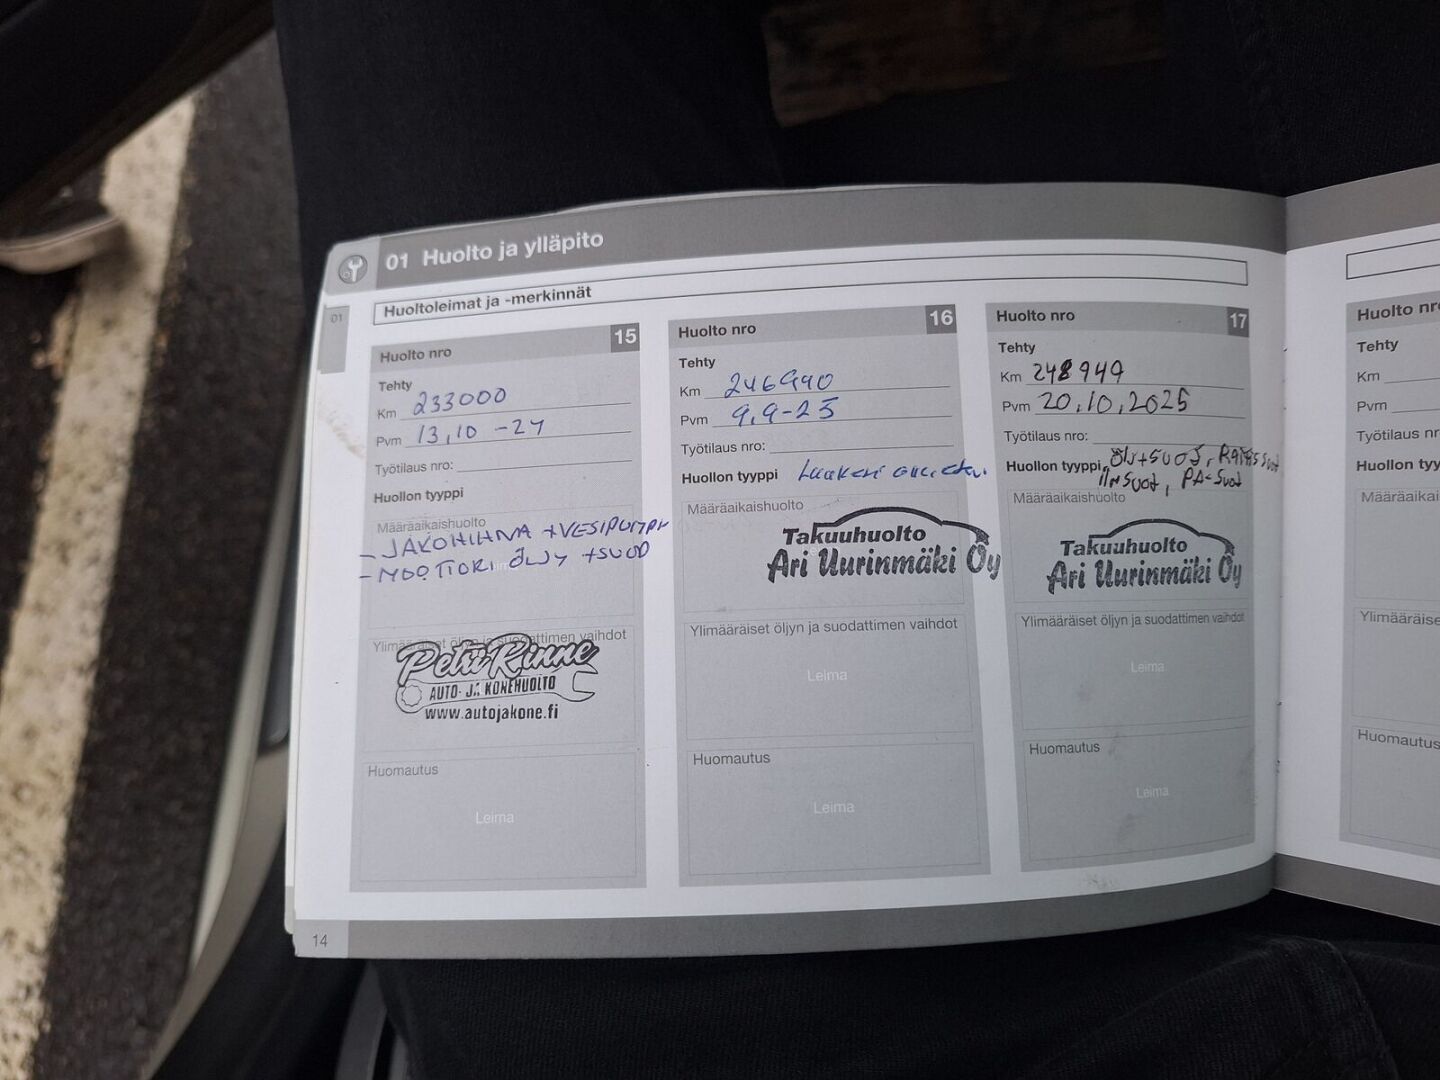 01 Huolto ja ylläpito
01
Huoltoleimat ja -merkinnät
Huolto nro 15
Tehty
Km 233000
Pvm 13,10 -24
Työtilaus nro:
Huollon tyyppi
Määräaikaishuolto
- JAKOHIHNA + VESIPUMPPU
- MOOTTORI ÖLJY + SUOD
Ylimääräiset öljyn ja suodattimen vaihdot
Petri Rinne
AUTO- JA KONEHUOLTO
www.autojakone.fi
Huomautus
Leima
14
Huolto nro 16
Tehty
Km 246990
Pvm 9,9-25
Työtilaus nro:
Huollon tyyppi
Määräaikaishuolto
Takuuhuolto
Ari Uurinmäki Oy
Ylimääräiset öljyn ja suodattimen vaihdot
Leima
Huomautus
Leima
Huolto nro 17
Tehty
Km 248949
Pvm 20,10,2025
Työtilaus nro:
Huollon tyyppi Ölj+suod, Raitis suod
ilm suod, PA-suod
Määräaikaishuolto
Takuuhuolto
Ari Uurinmäki Oy
Ylimääräiset öljyn ja suodattimen vaihdot
Leima
Huomautus
Leima
Huolto nro
Tehty
Km
Pvm
Työtilaus
Huollon
Määräaika
Ylimääräise
Huomautus